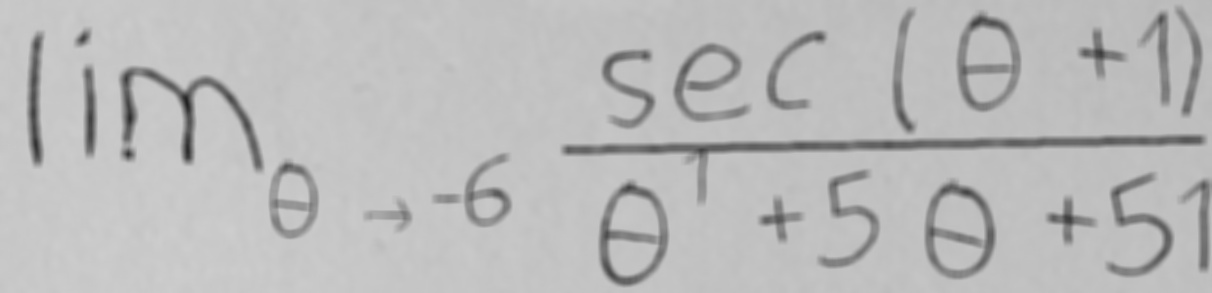 \lim_{\theta \to -6} \frac{\sec(\theta + 1)}{\theta^1 + 5\theta + 51}